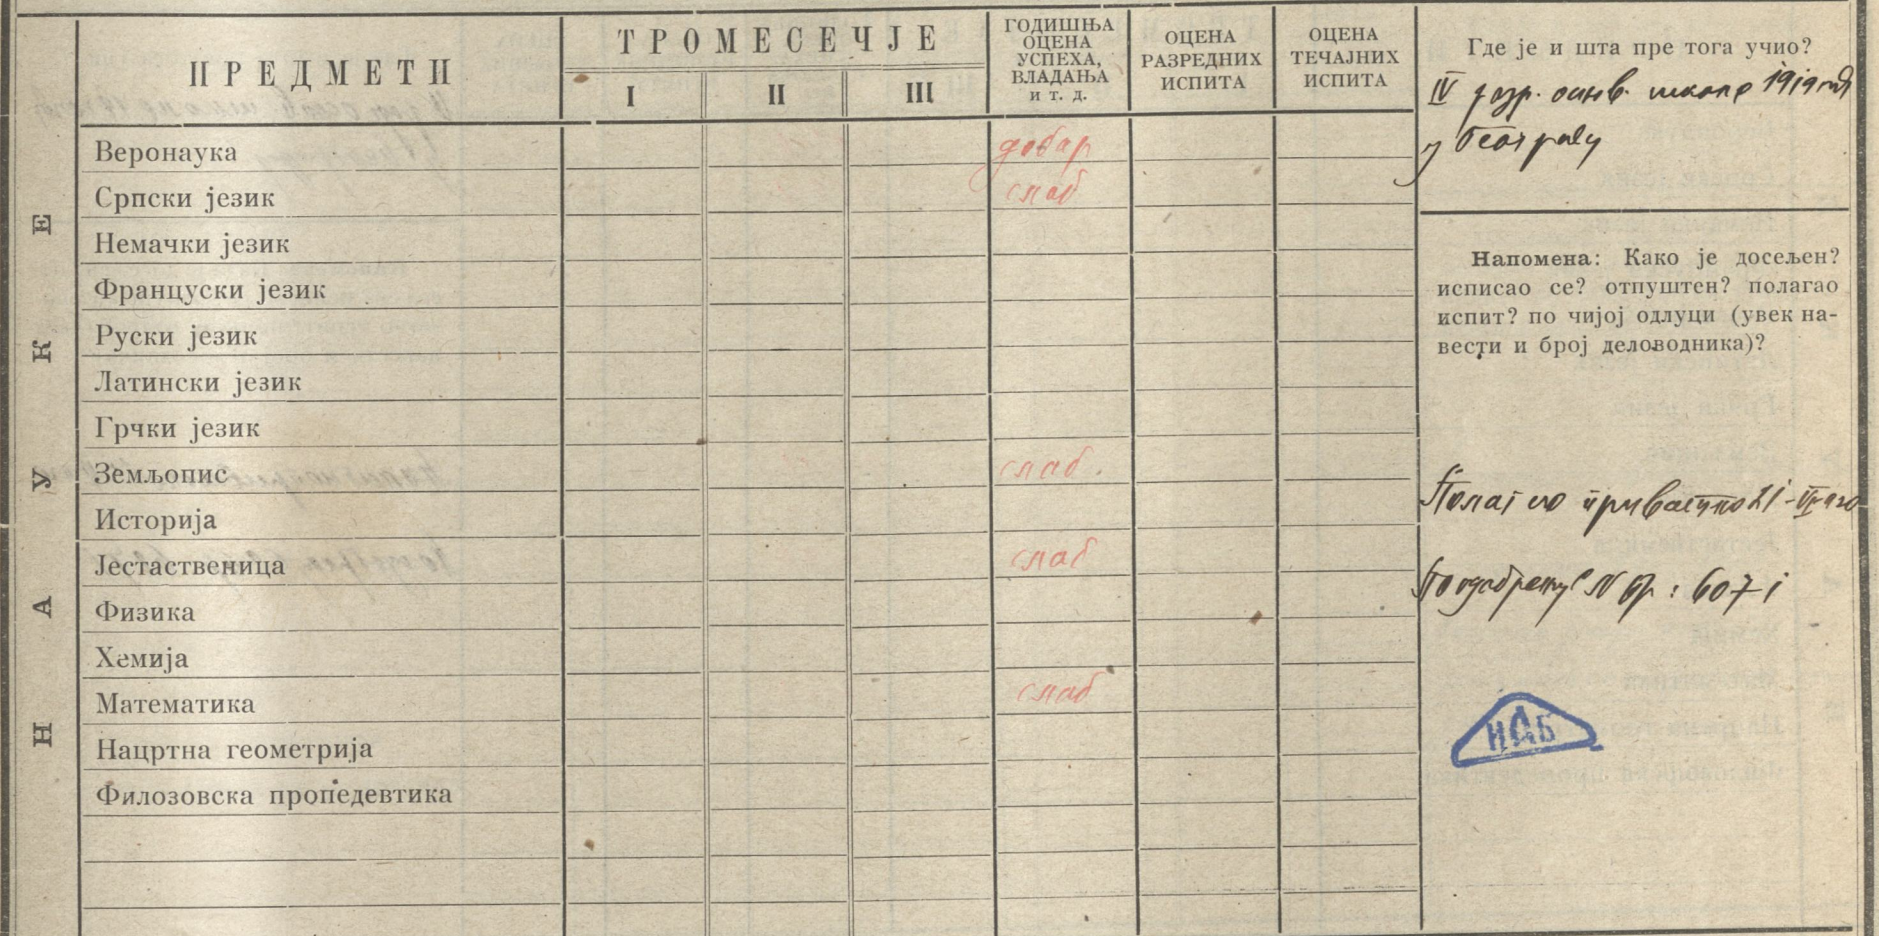 ПРЕДМЕТИ
ТРОМЕСЕЧЈЕ
I II III
ГОДИШЊА
ОЦЕНА
УСПЕХА,
ВЛАДАЊА
и т. д.
ОЦЕНА
РАЗРЕДНИХ
ИСПИТА
ОЦЕНА
ТЕЧАЈНИХ
ИСПИТА
НАУКЕ
Веронаука добар
Српски језик слаб
Немачки језик
Француски језик
Руски језик
Латински језик
Грчки језик
Земљопис слаб
Историја
Јестаственица слаб
Физика
Хемија
Математика слаб
Нацртна геометрија
Филозовска пропедевтика
Где је и шта пре тога учио?
IV разр. основ. школе 1919 год
у Београду
Напомена: Како је досељен?
исписао се? отпуштен? полагао
испит? по чијој одлуци (увек на-
вести и број деловодника)?
Полагао приватно 21-VI-920
По одобрењу Бр: 6071
ИАБ